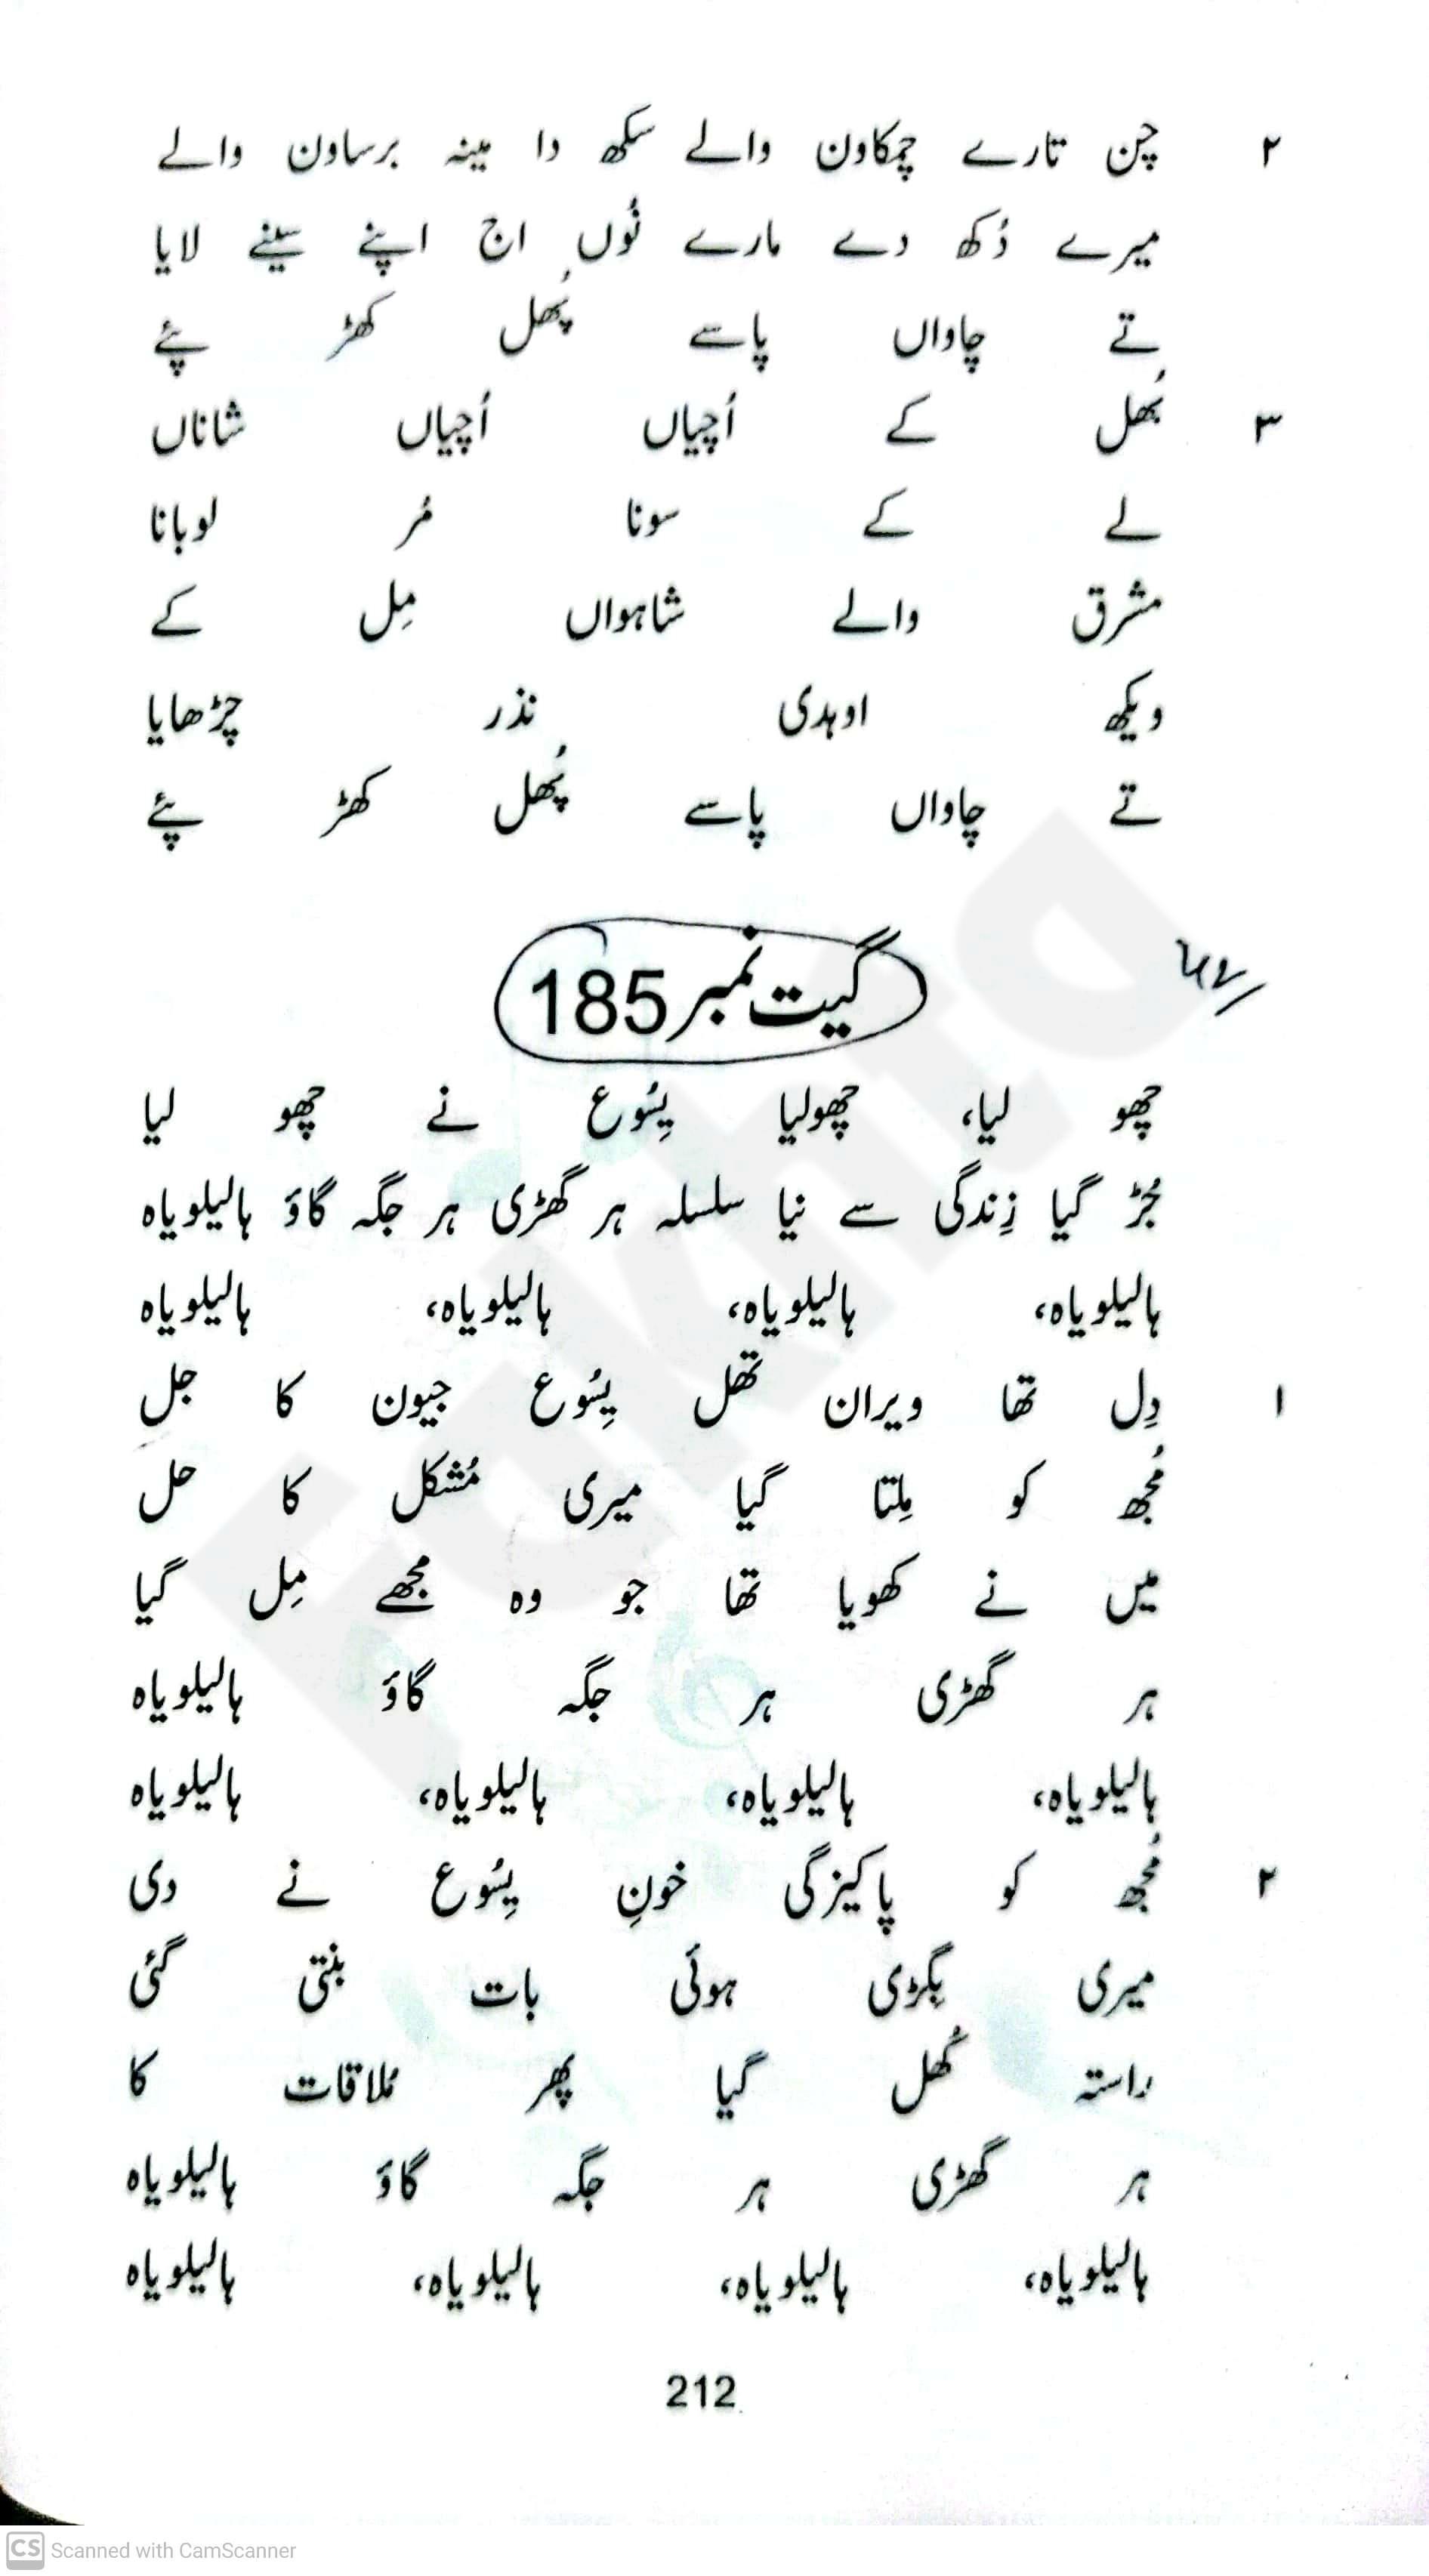 ۲ چن تارے چمکاون والے سکھ دا مینہ برساون والے
میرے دُکھ دے مارے نُوں اج اپنے سینے لایا
تے چاواں پاسے پُھل کھڑ پئے
۳ بُھل کے اُچیاں اُچیاں شاناں
لے کے سونا مُر لوبانا
مشرق والے شاہواں مِل کے
ویکھ اوہدی نذر چڑھایا
تے چاواں پاسے پُھل کھڑ پئے
گیت نمبر 185
چھو لیا، چھولیا یِسُوع نے چھو لیا
جُڑ گیا زِندگی سے نیا سلسلہ ہر گھڑی ہر جگہ گاؤ ہالیلویاہ
ہالیلویاہ، ہالیلویاہ، ہالیلویاہ، ہالیلویاہ
۱ دِل تھا ویران تھل یِسُوع جیون کا جل
مُجھ کو مِلتا گیا میری مُشکل کا حل
میں نے کھویا تھا جو وہ مُجھے مِل گیا
ہر گھڑی ہر جگہ گاؤ ہالیلویاہ
ہالیلویاہ، ہالیلویاہ، ہالیلویاہ، ہالیلویاہ
۲ مُجھ کو پاکیزگی خونِ یِسُوع نے دی
میری بِگڑی ہوئی بات بنتی گئی
راستہ کُھل گیا پھر مُلاقات کا
ہر گھڑی ہر جگہ گاؤ ہالیلویاہ
ہالیلویاہ، ہالیلویاہ، ہالیلویاہ، ہالیلویاہ
212
CS Scanned with CamScanner